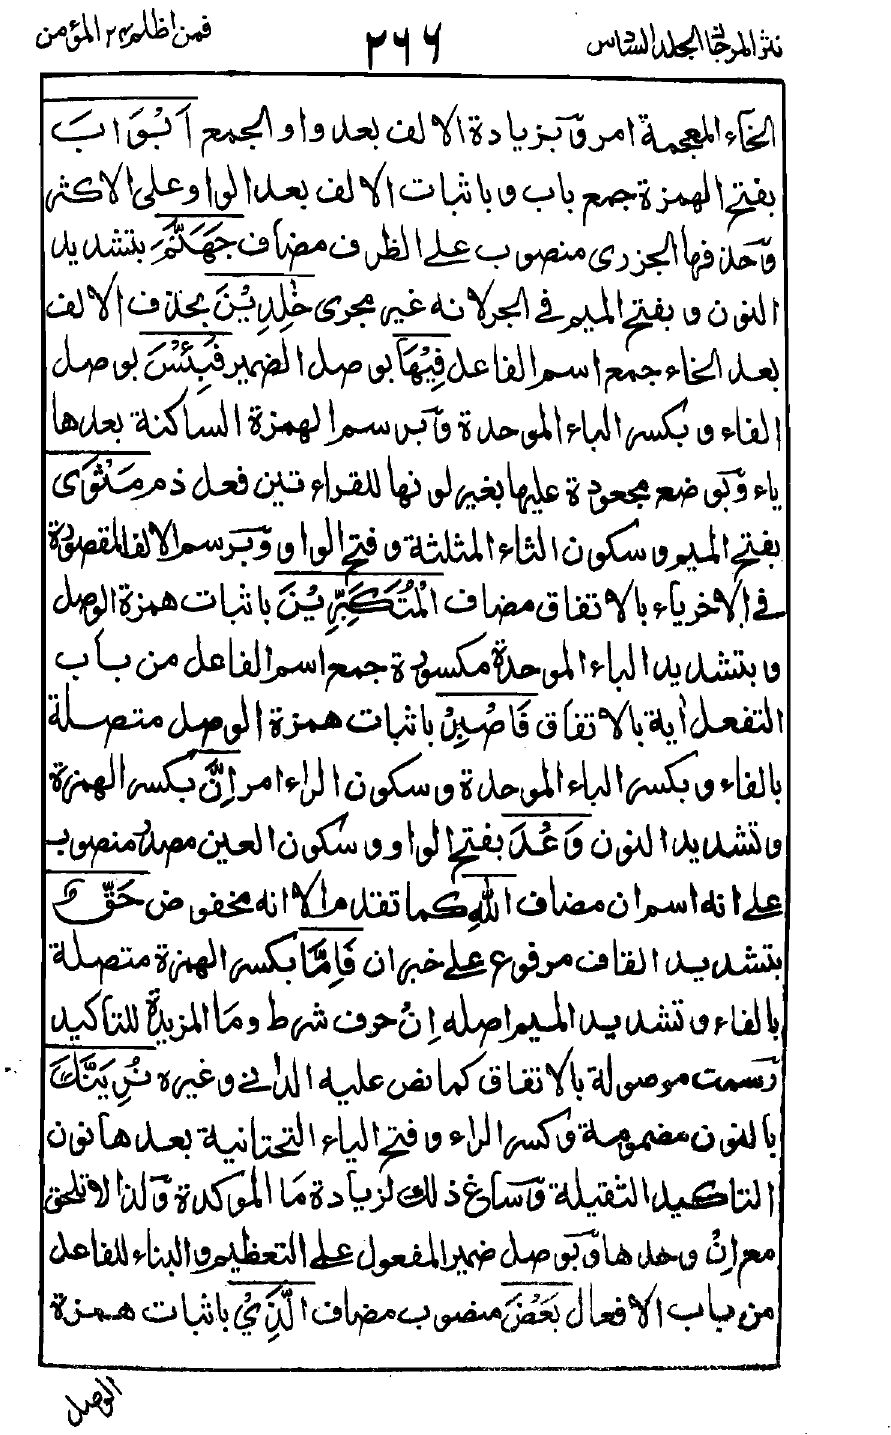 نثر المرجان الجلد السادس ٢٦٦ فمن اظلم ٢٤ المؤمن
الخاء المعجمة امر وَبزيادة الالف بعد واو الجمع اَبْوَابَ
بفتح الهمزة جمع باب وباثبات الالف بعد الواو على الاكثر
وَحذفها الجزرى منصوب على الظرف مضاف جَهَنَّمَ بتشديد
النون وبفتح الميم فى الجر لانه غير مجرى خٰلِدِيْنَ بحذف الالف
بعد الخاء جمع اسم الفاعل فِيْهَا بوصل الضمير فَبِئْسَ بوصل
الفاء وبكسر الباء الموحدة وَبرسم الهمزة الساكنة بعدها
ياء وَبوضع مجعودة عليها بغير لونها للقراءتين فعل ذم مَثْوَى
بفتح الميم وسكون الثاء المثلثة وفتح الواو وَبرسم الالف المقصورة
فى الاخر ياء بالاتفاق مضاف الْمُتَكَبِّرِيْنَ باثبات همزة الوصل
وبتشديد الباء الموحدة مكسورة جمع اسم الفاعل من باب
التفعل اٰية بالاتفاق فَاصْبِرْ باثبات همزة الوصل متصلة
بالفاء وبكسر الباء الموحدة وسكون الراء امر اِنَّ بكسر الهمزة
وتشديد النون وَعْدَ بفتح الواو وسكون العين مصدر منصوب
على انه اسم ان مضاف اللّٰهِ كما تقدم الا انه مخفوض حَقٌّ
بتشديد القاف مرفوع على خبر ان فَاِمَّا بكسر الهمزة متصلة
بالفاء وتشديد الميم اصله اِنْ حرف شرط ومَا المزيدة للتاكيد
رَسمت موصولة بالاتفاق كما نص عليه الدانى وغيره نُرِيَنَّكَ
بالنون مضمومة وَكسر الراء وفتح الياء التحتانية بعدها نون
التاكيد الثقيلة وَساغ ذلك لزيادة مَا الموكدة وَلذا لا تلحق
مع اِنْ وحدها وَبوصل ضمير المفعول على التعظيم والبناء للفاعل
من باب الافعال بَعْضَ منصوب مضاف الَّذِيْ باثبات همزة
الوصل